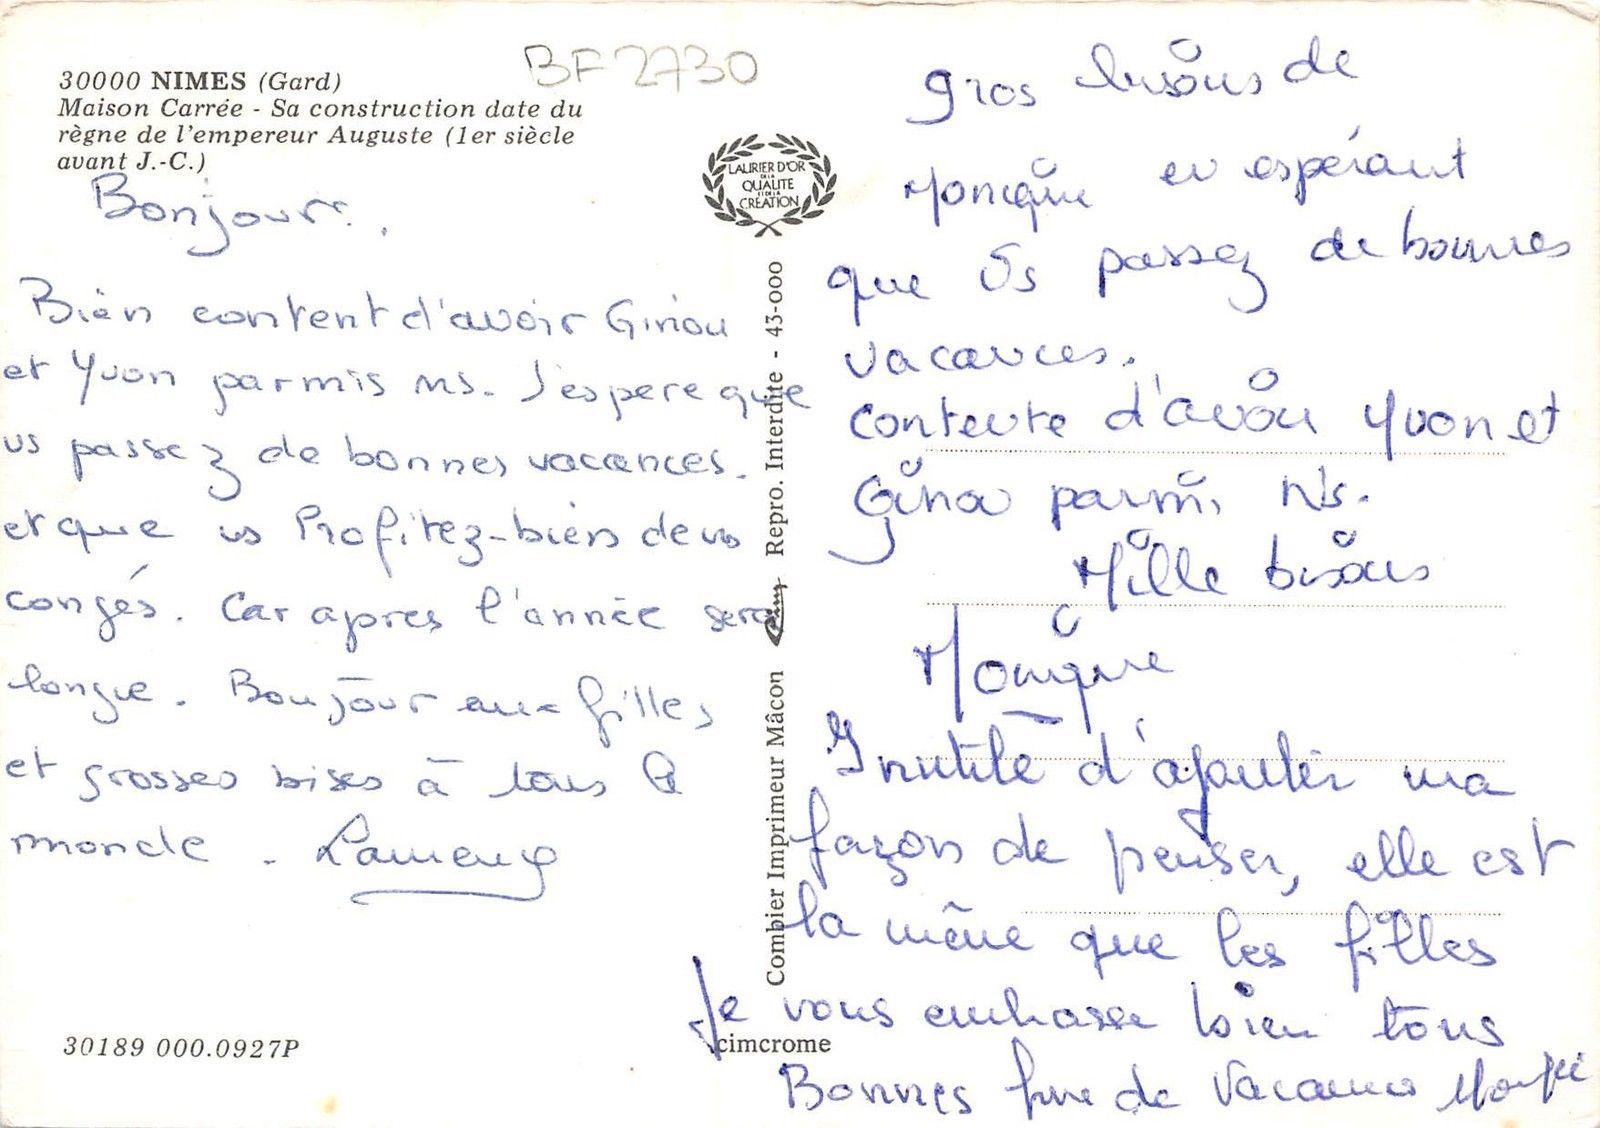 BF 2730
30000 NIMES (Gard)
Maison Carrée - Sa construction date du
règne de l'empereur Auguste (1er siècle
avant J.-C.)
Bonjour.
Bien content d'avoir Ginou
et Yvon parmis ns. J'espere que
vs passez de bonnes vacances.
et que vs Profitez-bien de vos
congés. Car apres l'année sera
longue. Bonjour aux filles
et grosses bises à tous le
monde.
30189 000.0927P
LAURIER D'OR
DE LA
QUALITE
ET DE LA
CRÉATION
Combier Imprimeur Mâcon
Repro. Interdite - 43-000
cimcrome
gros bisous de
Monique en espérant
que Vs passez de bonnes
vacances.
Contente d'avoir Yvon et
Gino parmi Ns.
Mille bisous
Monique
Inutile d'ajouter ma
façon de penser, elle est
la même que les filles
Je vous embrasse bien tous
Bonnes fin de Vacances